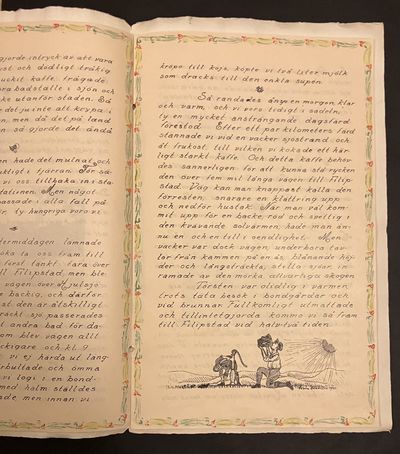 gjorde intryck av att vara
ost och dödligt tråkig
uckit kaffe, frågade
ora badställe i sjön och
ke utanför staden. Så
det ju inte att krypa i
en, men då det på land
en så gjorde det ändå
en hade det mulnat och
kligt i fjärran. För säker
vi oss tillbaka till sta
tationen. Men något
assade i alla fall på
r, ty hungriga voro vi
termiddagen lämnade
oka ta oss fram till
först tänkt fara över
ll Filipstad, men ble
vägen över Hulsjö
backig, och därför
st den är älskligt
räckt. Sjö passerades
t andra bad för da-
om blev vägen allt
ckigare och kl. 9
vi ej härda ut läng
rbultade och ömma
vi logi i en bond-
med halm ställdes
nade, men innan vi
kropo till kojs, köpte vi två liter mjölk
som dracks till den enkla supén.
Så randades ånyo en morgon klar
och varm, och vi voro tidigt i sadeln,
ty en mycket ansträngande dagsfärd
förestod. Efter ett par kilometers färd
stannade vi vid en vacker sjöstrand och
åt frukost till vilken vi kokade ett här-
ligt starkt kaffe. Och detta kaffe behöv-
des sannerligen för att kunna stå rycken
den över fem mil långa vägen till Filip-
stad. Väg kan man knappast kalla den
förresten, snarare en klättring upp
och nedför hustak. När man väl kom-
mit upp för en backe, röd och svettig i
den kravande solvärmen, hade man än-
nu en och en till i oändlighet. Men
vacker var dock vägen, underbara tav-
lor från kammen på en ås, blånande höj-
der och långsträckta, stilla sjöar, in-
ramade av den mörka allvarliga skogen
Törsten var olidlig i värmen,
trots täta besök i bondgårdar och
vid brunnar. Fullkomligt utmattade
och tillintetgjorda kommo vi så fram
till Filipstad vid halvtvå tiden.